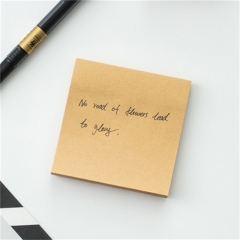 No road of flowers lead
to glory.